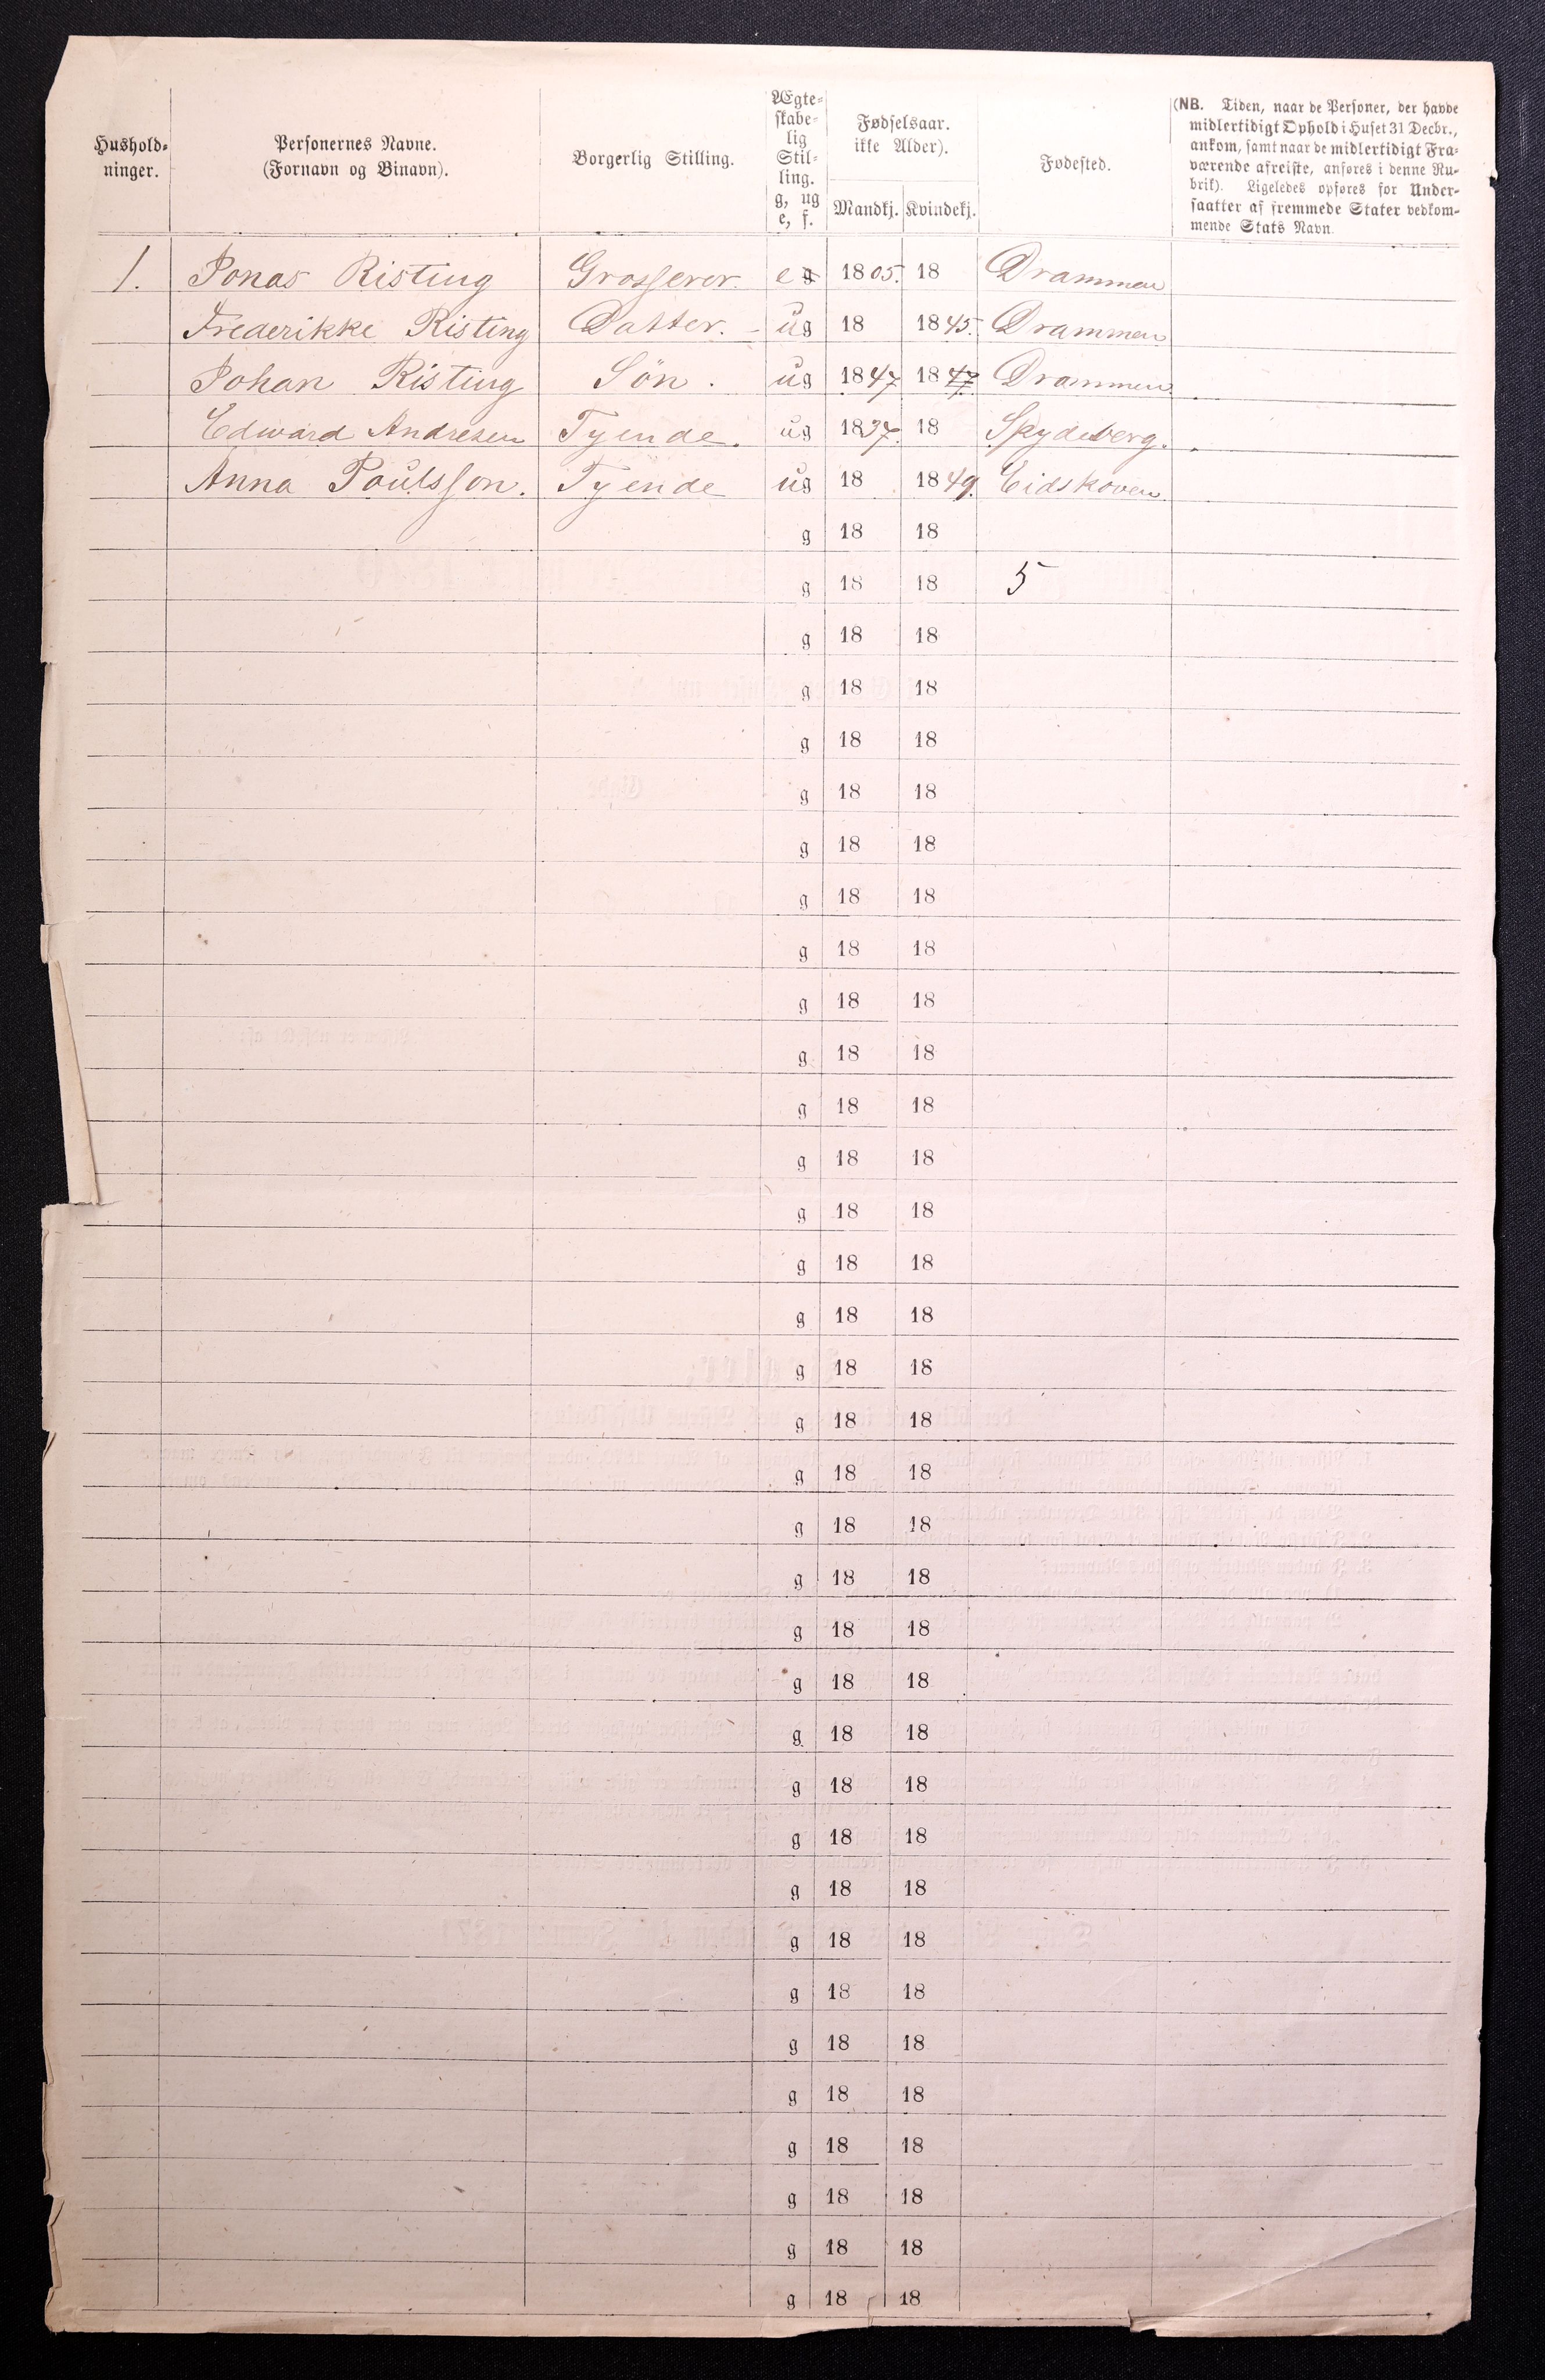 Hushold-
ninger.
Personernes Navne.
(Fornavn og Binavn).
Borgerlig Stilling.
Ægte-
skabe-
lig
Stil-
ling.
g, ug
e, f.
Fødselsaar.
ikke Alder).
Mandkj. Kvindekj.
Fødested.
(NB. Tiden, naar de Personer, der havde
midlertidigt Ophold i Huset 31 Decbr.,
ankom, samt naar de midlertidigt Fra-
værende afreiste, anføres i denne Ru-
brik). Ligeledes opføres for Under-
saatter af fremmede Stater vedkom-
mende Stats Navn.
1. Jonas Risting Grosserer. e g 1805. 18 Drammen
Frederikke Risting Datter. - ug 18 1845. Drammen
Johan Risting Sön. ug 1847 1847 Drammen
Edward Andresen Tyende. ug 1837. 18 Spydeberg.
Anna Poulsson. Tyende ug 18 1849. Eidskoven
g 18 18
g 18 18 5
g 18 18
g 18 18
g 18 18
g 18 18
g 18 18
g 18 18
g 18 18
g 18 18
g 18 18
g 18 18
g 18 18
g 18 18
g 18 18
g 18 18
g 18 18
g 18 18
g 18 18
g 18 18
g 18 18
g 18 18
g 18 18
g 18 18
g 18 18
g 18 18
g 18 18
g 18 18
g 18 18
g 18 18
g 18 18
g 18 18
g 18 18
g 18 18
g 18 18